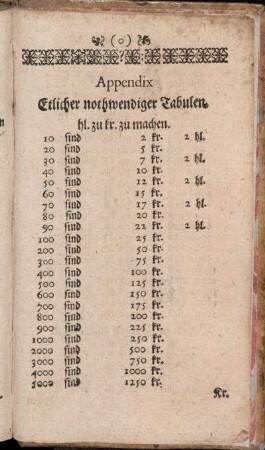 ( o )
Appendix
Etlicher nothwendiger Tabulen.
hl. zu kr. zu machen.
10 sind 2 kr. 2 hl.
20 sind 5 kr.
30 sind 7 kr. 2 hl.
40 sind 10 kr.
50 sind 12 kr. 2 hl.
60 sind 15 kr.
70 sind 17 kr. 2 hl.
80 sind 20 kr.
90 sind 22 kr. 2 hl.
100 sind 25 kr.
200 sind 50 kr.
300 sind 75 kr.
400 sind 100 kr.
500 sind 125 kr.
600 sind 150 kr.
700 sind 175 kr.
800 sind 200 kr.
900 sind 225 kr.
1000 sind 250 kr.
2000 sind 500 kr.
3000 sind 750 kr.
4000 sind 1000 kr.
5000 sind 1250 kr.
Kr.